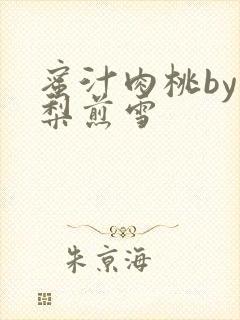 蜜汁肉桃by
梨煎雪
朱京海